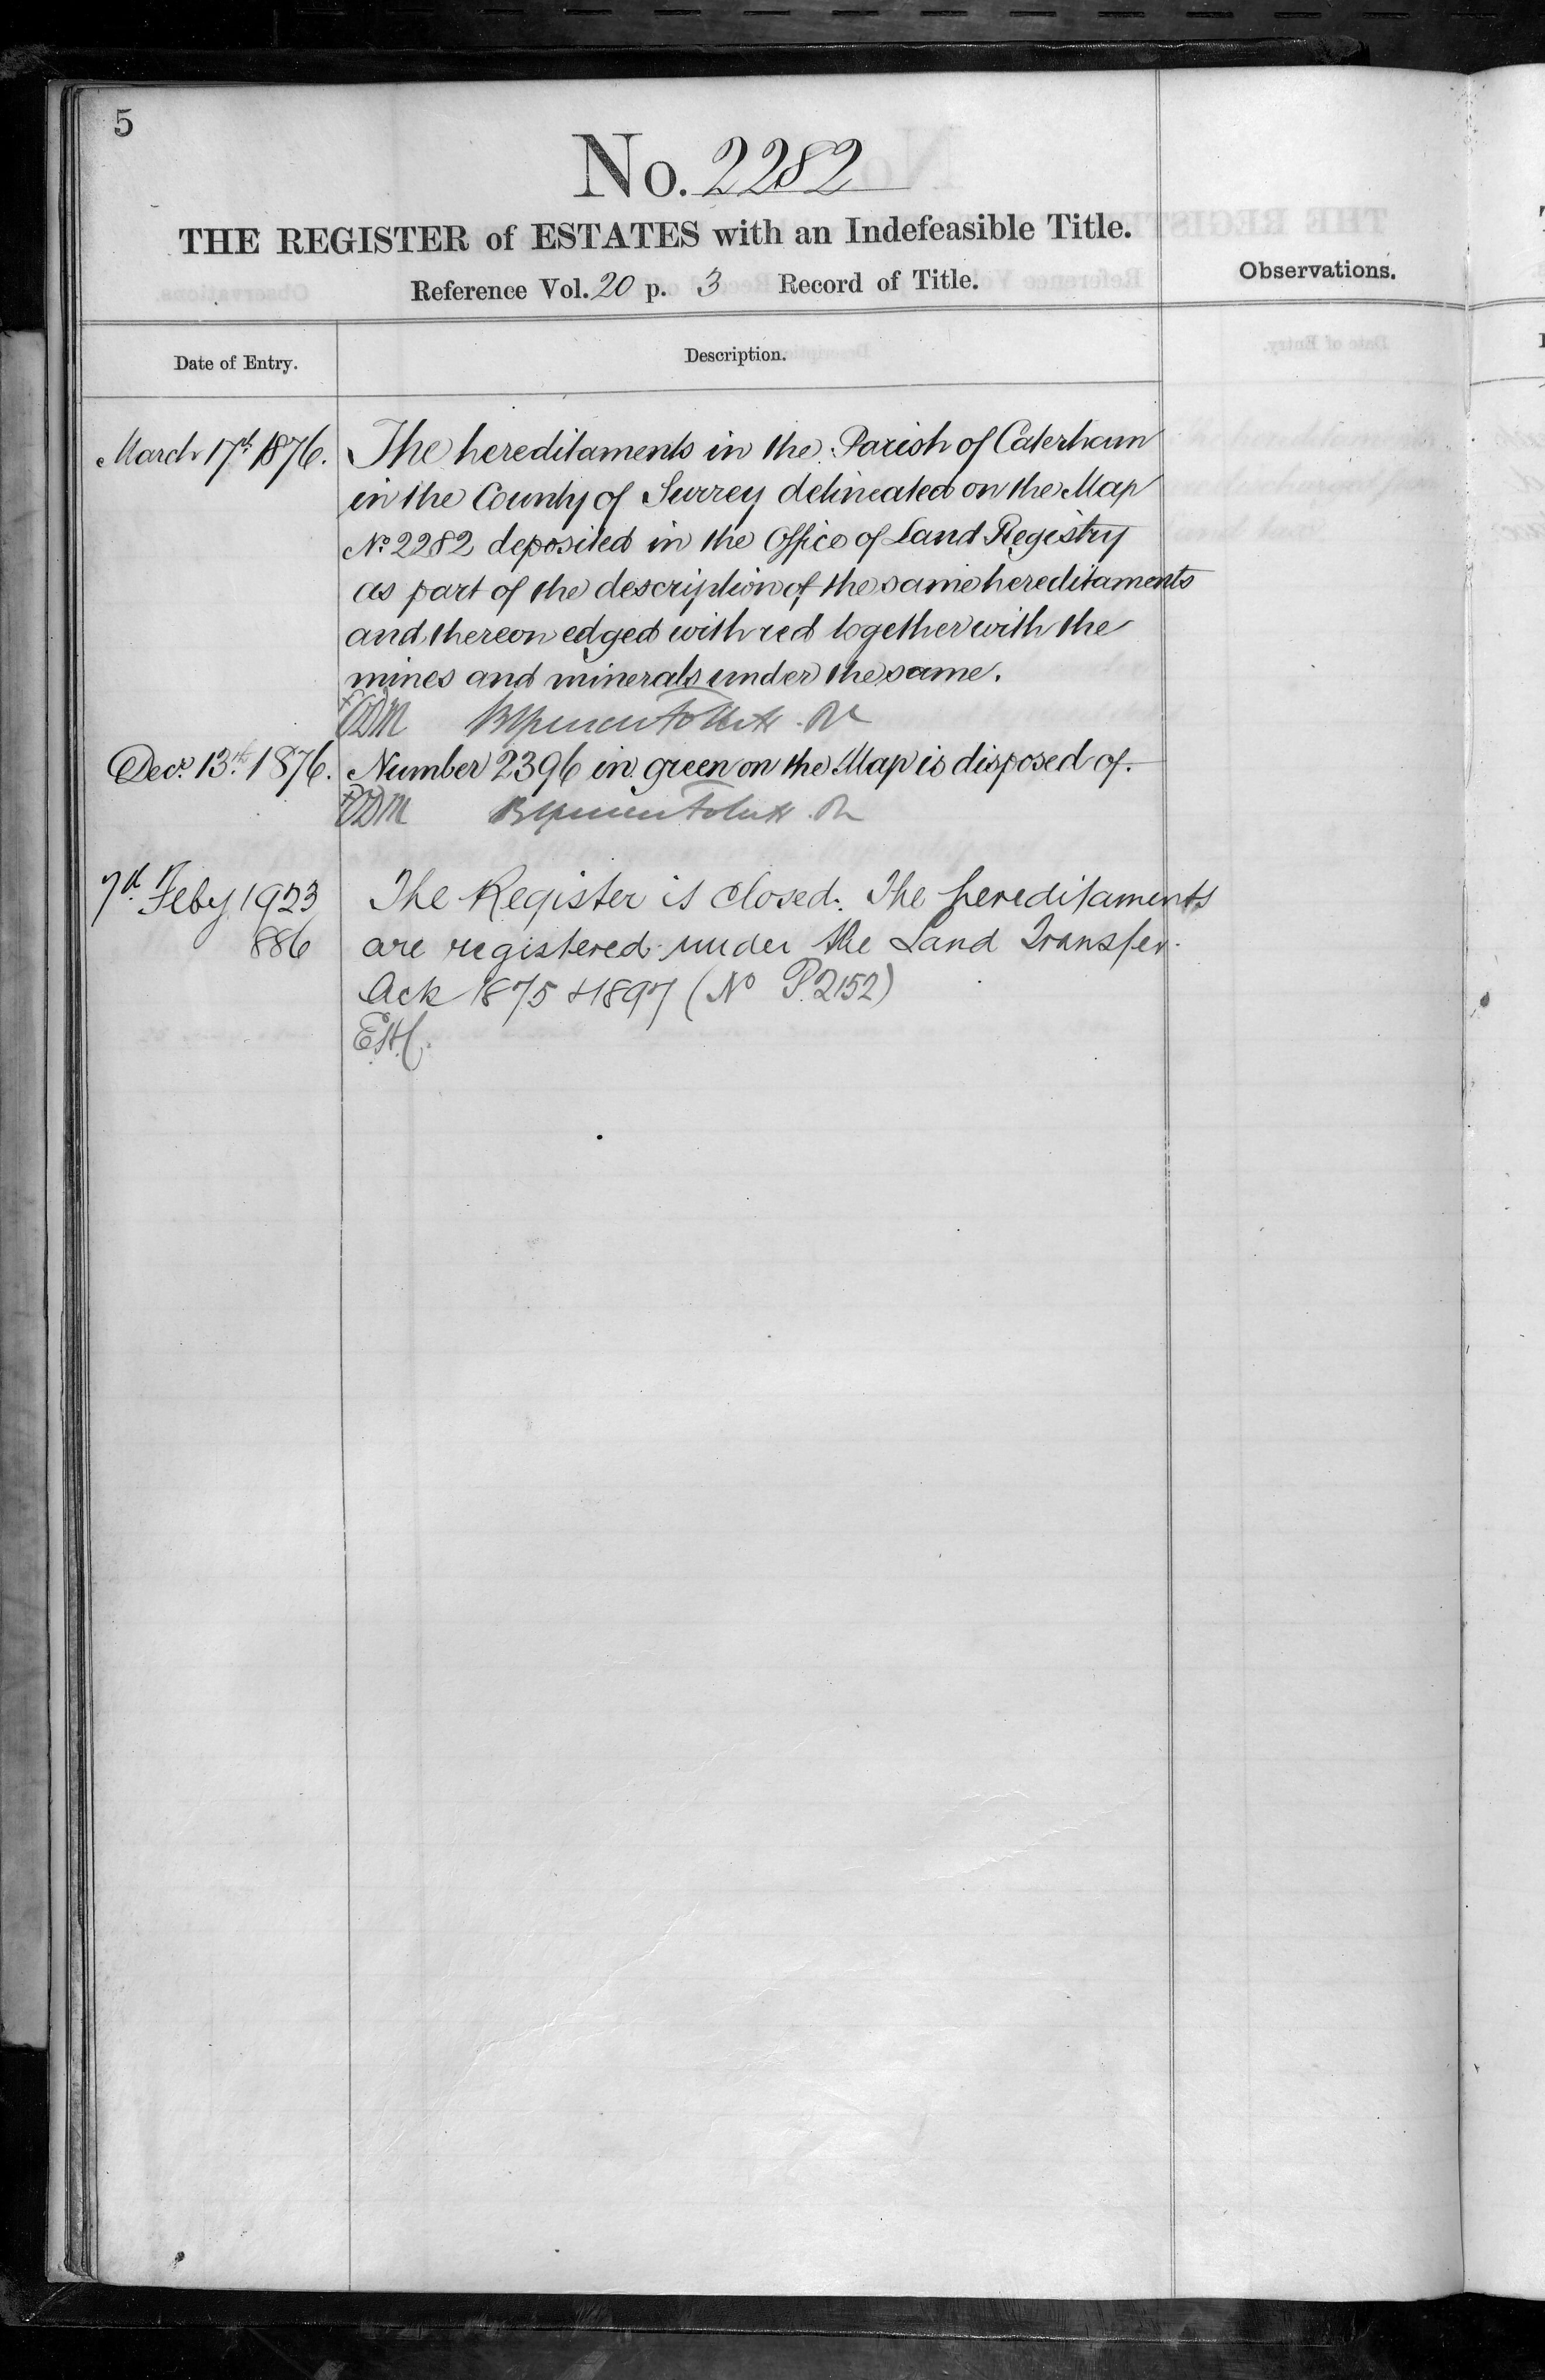 5
No. 2282
THE REGISTER of ESTATES with an Indefeasible Title.
Reference Vol. 20 p. 3 Record of Title.
Observations.
Date of Entry.
Description.
March 17th 1876.
The hereditaments in the Parish of Caterham
in the County of Surrey delineated on the Map
No. 2282 deposited in the Office of Land Registry
as part of the description of the same hereditaments
and thereon edged with red together with the
mines and minerals under the same.
Decr. 13th. 1876.
Number 2396 in green on the Map is disposed of.
7th Feby 1923
886
The Register is closed. The hereditaments
are registered under the Land Transfer
Acts 1875 & 1897 (No P.2152)